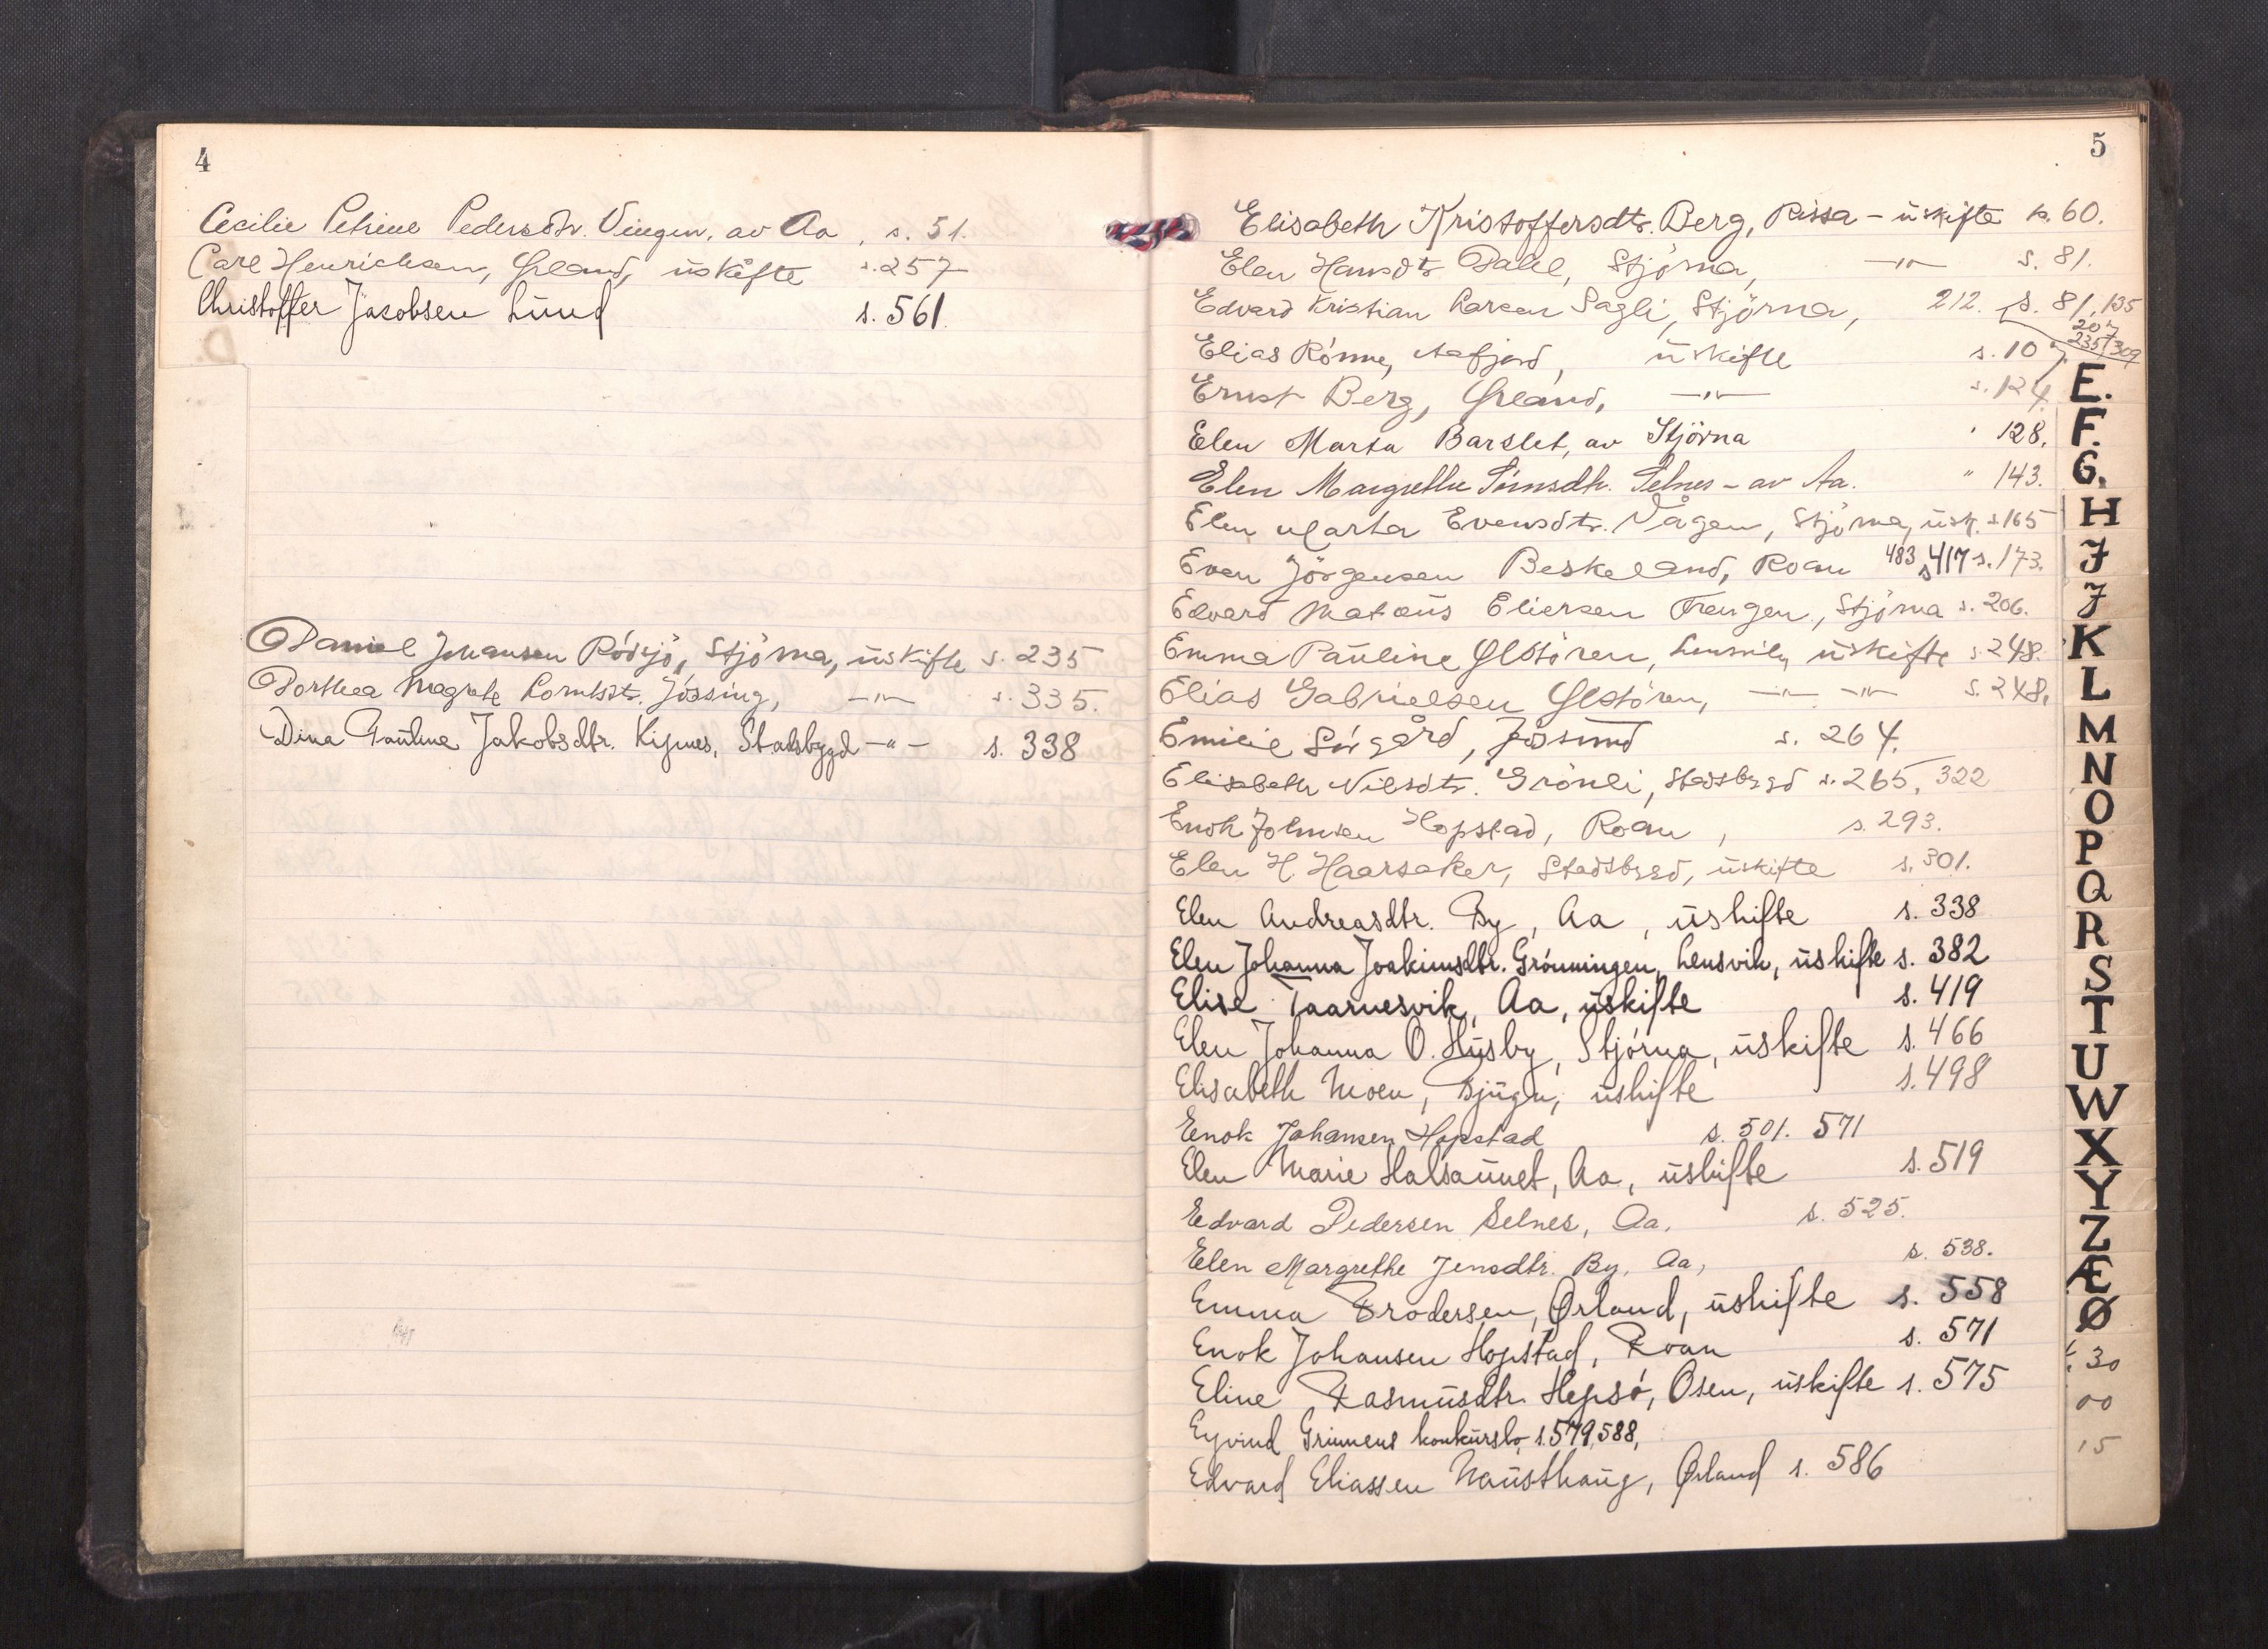 4
Cecilie Petrine Pedersdtr. Vingen, av Aa, s. 51.
Carl Henrichsen, Ørland, uskifte s. 257
Christoffer Jacobsen Lund s. 561
D.
Daniel Johansen Rödsjö, Stjörna, uskifte s. 235
Dorthea Magrete Lorntsdtr. Jössing, —"— s. 335.
Dina Paulina Jakobsdtr. Kijnes, Stadsbygd —"— s. 338
5
Elisabeth Kristoffersdtr. Berg, Rissa – uskifte s. 60.
Elen Hansdtr Dahl, Stjörna, —"— s. 81.
Edvard Kristian Larsen Sagli, Stjörna, 212. s. 81, 135
207
235, 309
Elias Rönne, Aafjord, uskifte s. 107.
Ernst Berg, Ørland, —"— s. 124.
Elen Marta Barslet, av Stjörna 128.
Elen Margrethe Selnes – av Aa. " 143.
Elen Marta Evensdtr. Vågen, Stjörna, usk. s. 165
Even Jörgensen Beskeland, Roan 483 s 417 s. 173.
Edvard Mataus Eliersen Trengen, Stjörna s. 206.
Emma Pauline Ølstören, uskifte s. 248.
Elias Gabrielsen Ølstören, —"— —"— s. 248.
Emilie Sörgård, Jössund s. 264.
Elisabeth Nilsdtr. Grönli, Stadsbygd s. 265, 322
Enok Johnsen Hopstad, Roan, s. 293.
Elen H. Haarsaker, Stadsbygd, uskifte s. 301.
Elen Andreasdtr. By, Aa, uskifte s. 338
Elen Johanna Joakimsdtr. Grönningen, Lensvik, uskifte s. 382
Elise Taarnesvik, Aa, uskifte s. 419
Elen Johanna O. Husby, Stjörna, uskifte s. 466
Elisabeth Moen, Bjugn, uskifte s. 498
Enok Johansen Hopstad s. 501. 571
Elen Marie Halsaunet, Aa, uskifte s. 519
Edvard Pedersen Selnes, Aa. s. 525.
Elen Margrethe Jensdtr. By, Aa, s. 538.
Emma Brodersen, Ørland, uskifte s. 558
Enok Johansen Hopstad, Roan s. 571
Eline Rasmusdtr. Hepsö, Osen, uskifte s. 575
Eyvind Grinnens konkursbo s. 579, 588,
Edvard Eliassen Nausthaug, Ørland s. 586
E.
F.
G.
H
J
J
K
L
M
N
O
P
Q
R
S
T
U
W
X
Y
Z
Æ
Ø
30
00
15